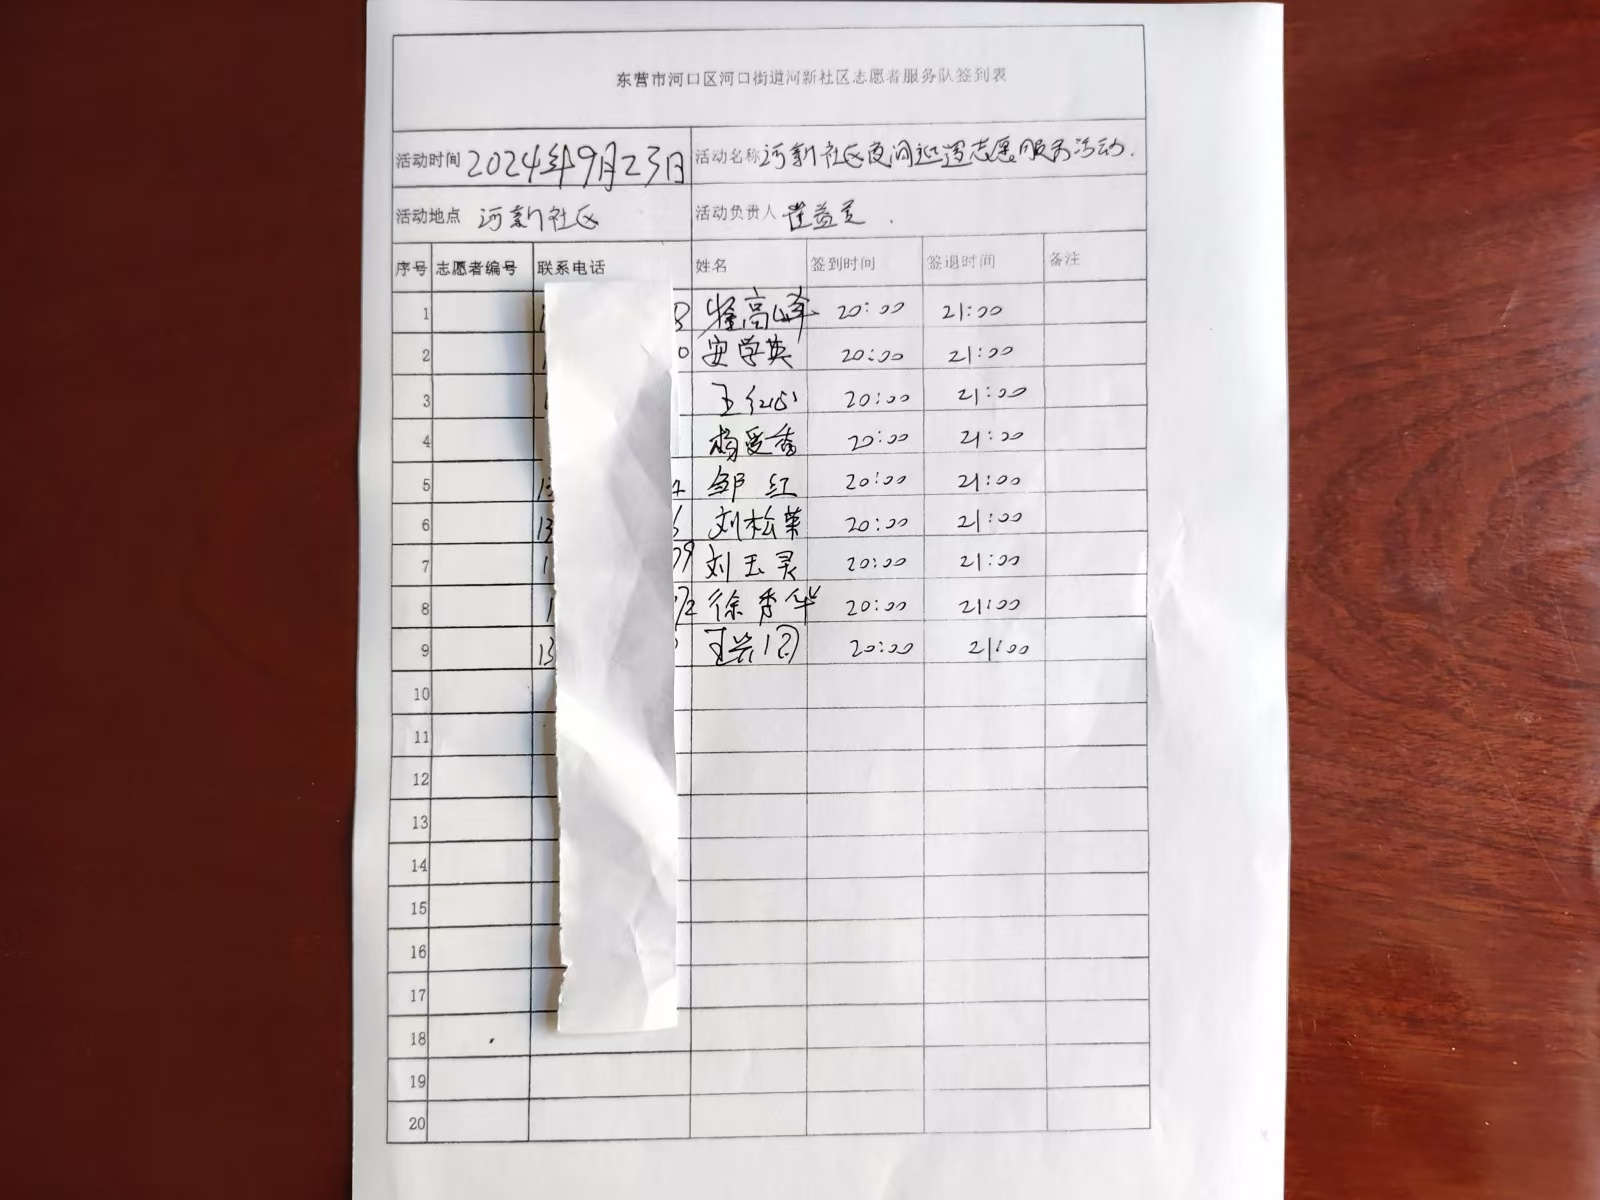 东营市河口区河口街道河新社区志愿者服务队签到表
活动时间 2024年9月23日 活动名称 河新社区夜间巡逻志愿服务活动.
活动地点 河新社区 活动负责人
序号 志愿者编号 联系电话 姓名 签到时间 签退时间 备注
1 高峰 20:00 21:00
2 0 安学英 20:00 21:00
3 王红心 20:00 21:00
4 杨爱香 20:00 21:00
5 13 邹红 20:00 21:00
6 13 刘松荣 20:00 21:00
7 1 79 刘玉灵 20:00 21:00
8 1 72 徐秀华 20:00 21:00
9 13 20:00 21:00
10
11
12
13
14
15
16
17
18
19
20